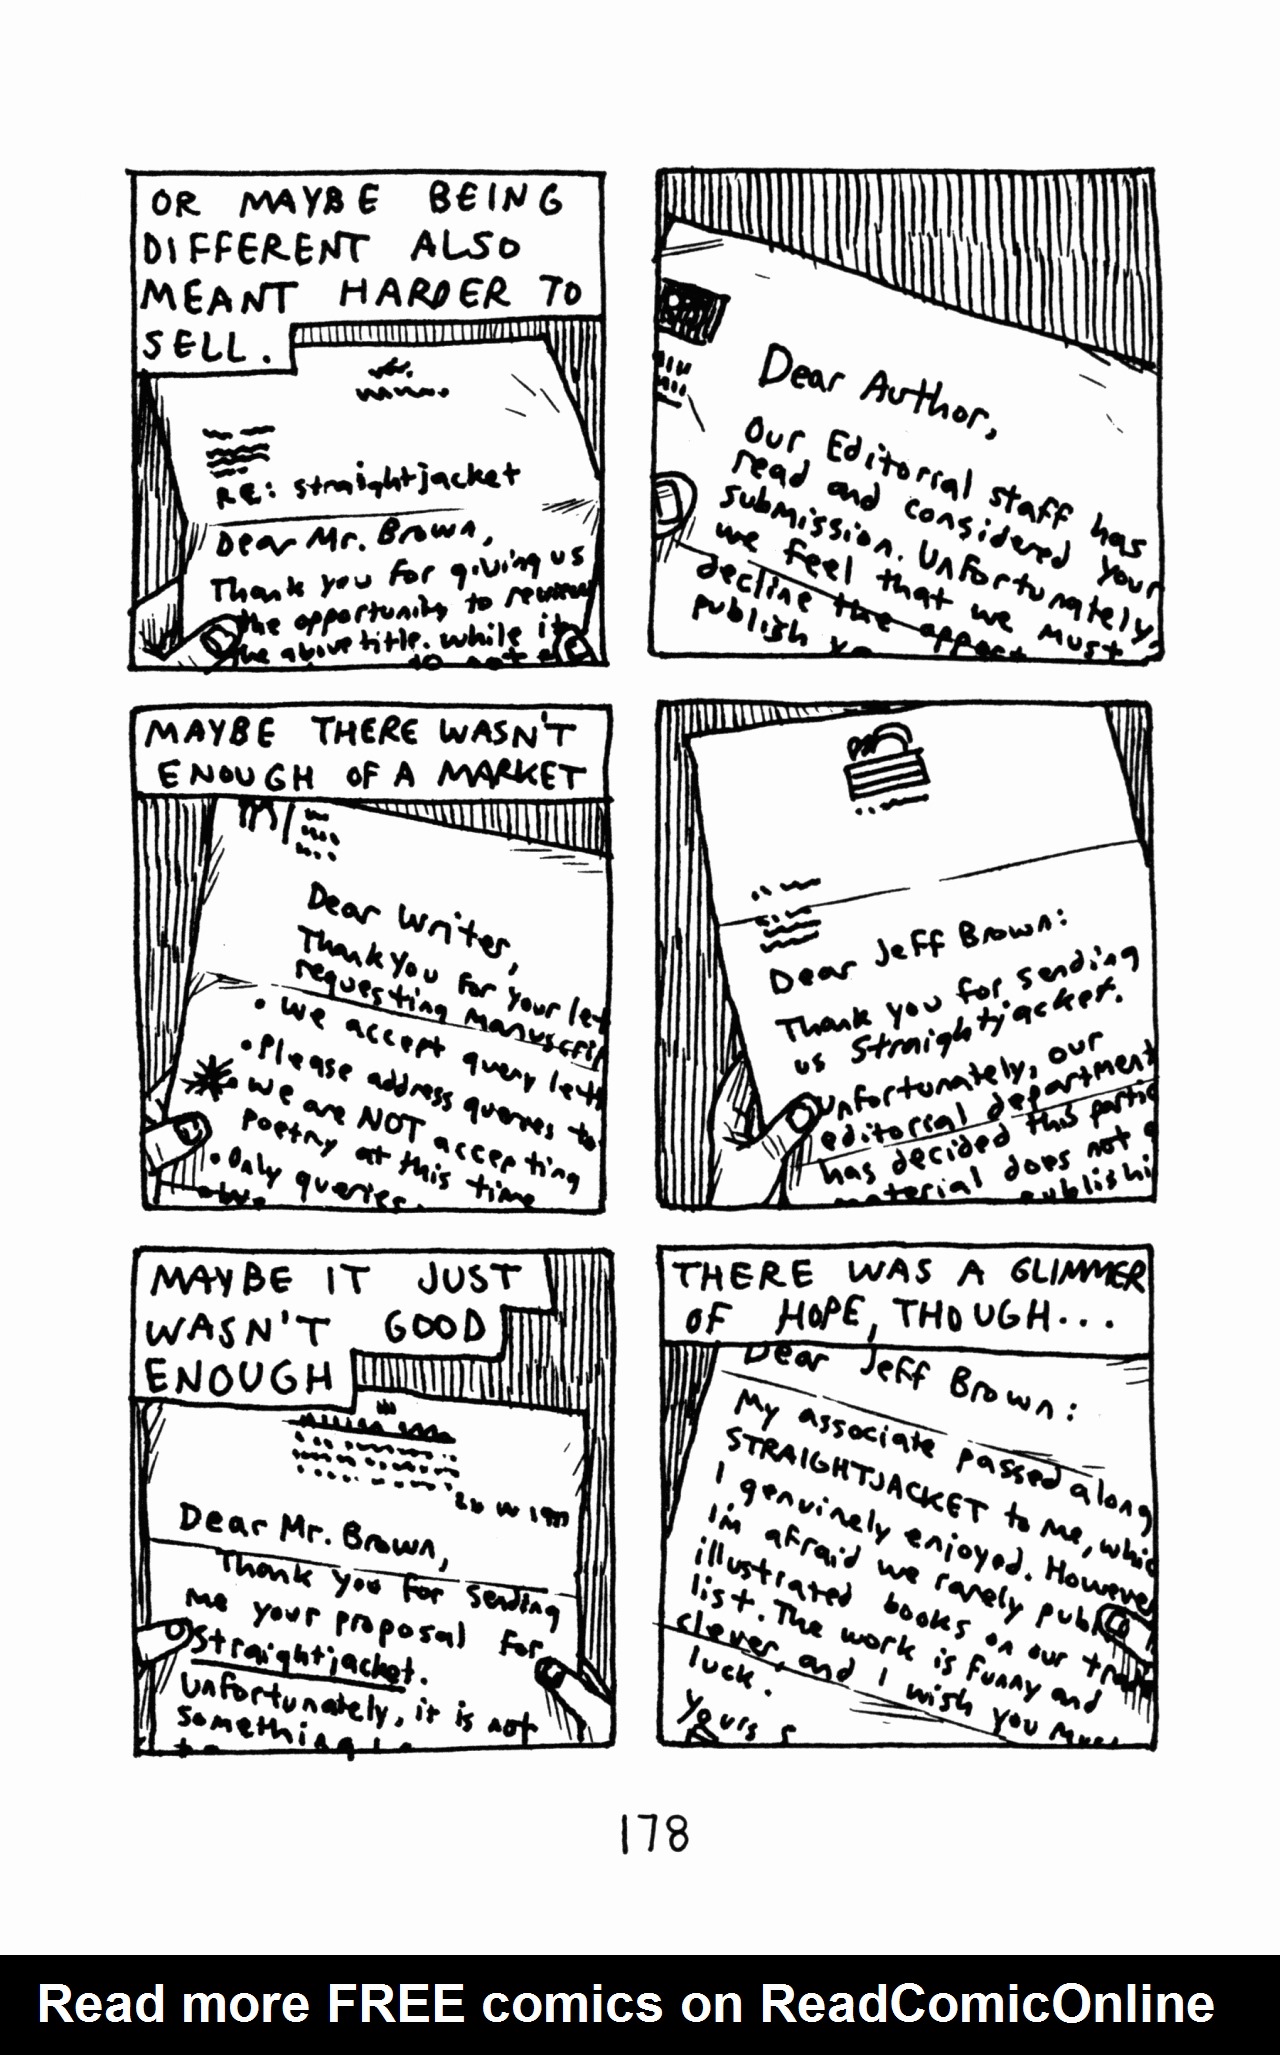 OR MAYBE BEING
DIFFERENT ALSO
MEANT HARDER TO
SELL.
RE: straightjacket
Dear Mr. Brown,
Thank you for giving us
the opportunity to review
the above title. While it
do not
Dear Author,
Our Editorial staff has
read and considered your
submission. Unfortunately,
we feel that we must
decline the opport
publish yo
MAYBE THERE WASN'T
ENOUGH OF A MARKET
Dear Writer,
Thank you for your let
requesting manuscrip
• We accept query lett
• Please address queries to
We are NOT accepting
poetry at this time
• Only queries
• We
Dear Jeff Brown:
Thank you for sending
us Straightjacket.
Unfortunately, our
editorial department
has decided this partic
material does not
publishi
MAYBE IT JUST
WASN'T GOOD
ENOUGH
Dear Mr. Brown,
Thank you for sending
me your proposal for
Straightjacket.
Unfortunately, it is not
something
THERE WAS A GLIMMER
OF HOPE, THOUGH...
Dear Jeff Brown:
My associate passed along
STRAIGHTJACKET to me, whic
I genuinely enjoyed. However
I'm afraid we rarely publ
illustrated books on our trade
list. The work is funny and
clever, and I wish you much
luck.
Yours
178
Read more FREE comics on ReadComicOnline